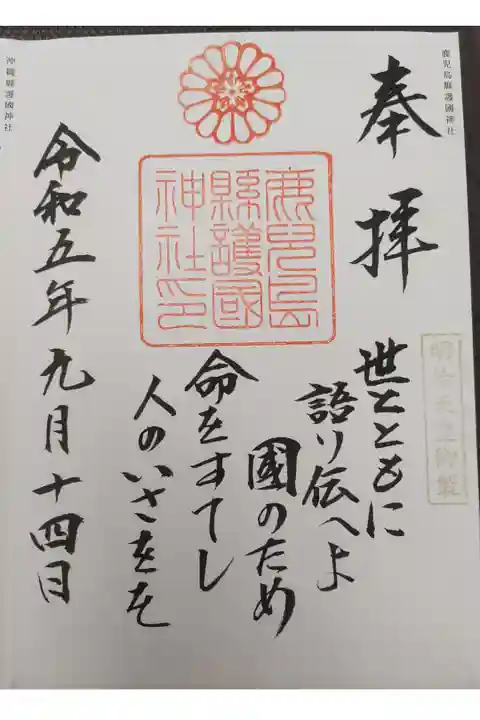 鹿児島縣護國神社
奉拝
明治天皇御製
世とともに
語り伝へよ
國のため
命をすてし
人のいさをを
鹿兒島
縣護國
神社印
令和五年九月十四日
沖縄縣護國神社